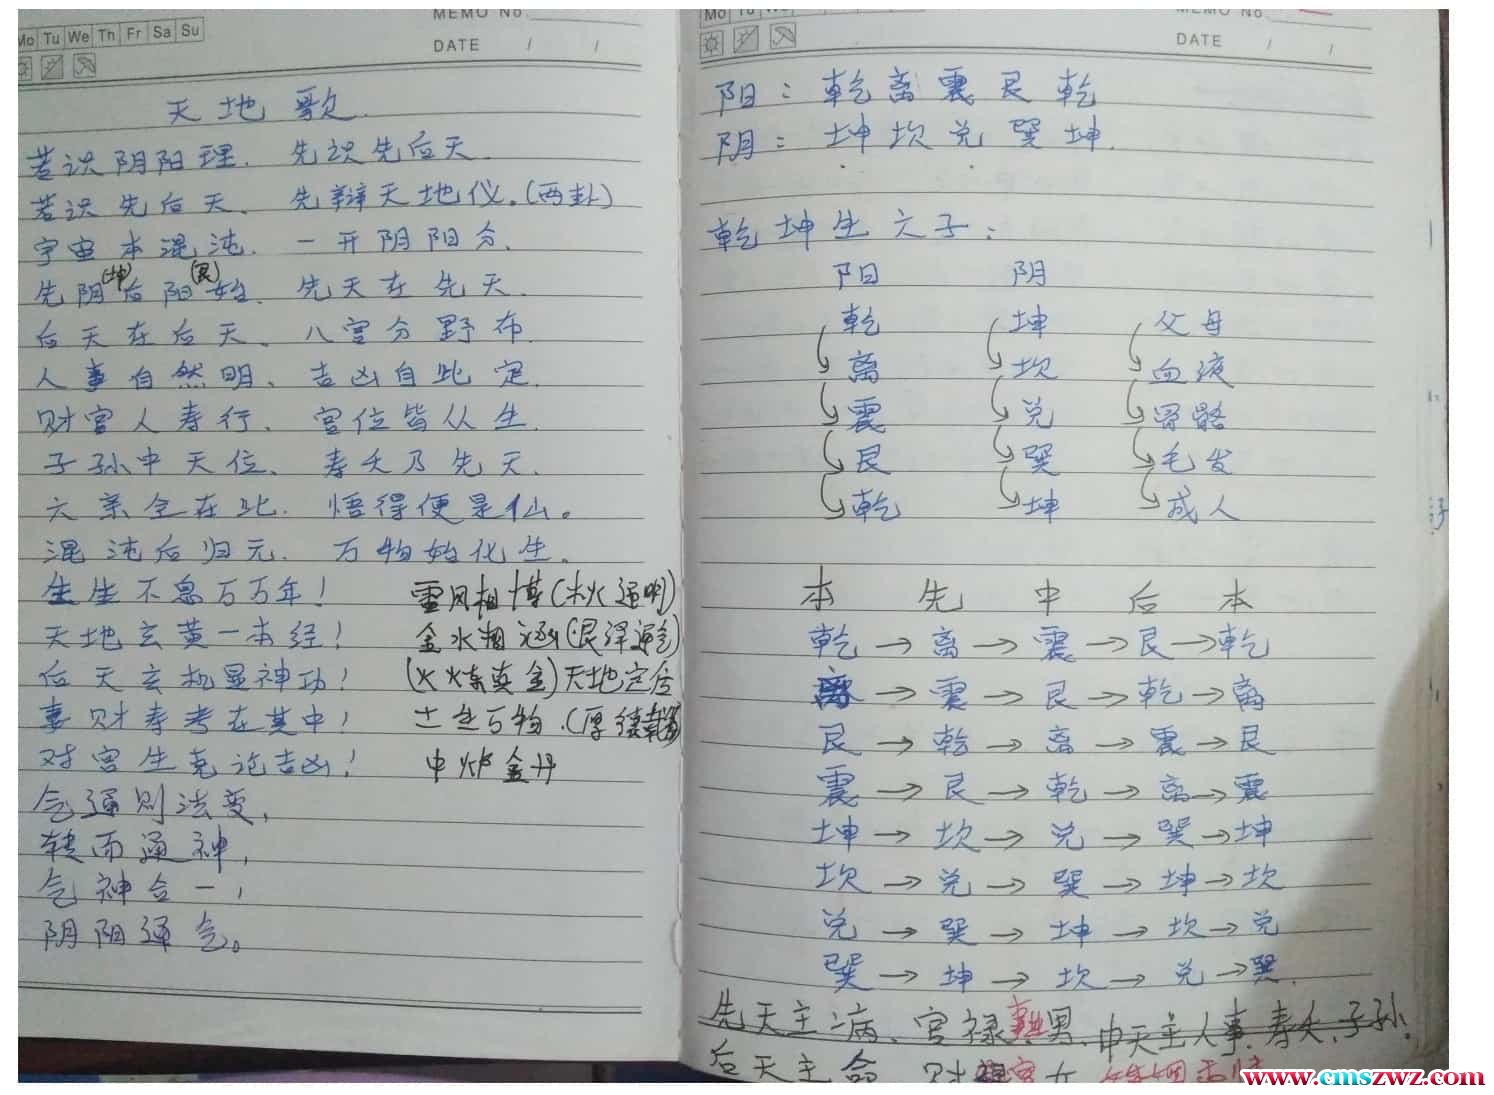 MEMO No
Mo Tu We Th Fr Sa Su
DATE / /
天地歌
若识阴阳理. 先识先后天.
若识先后天、先辩天地仪.(两卦)
宇宙本混沌. 一开阴阳分.
(坤) (艮)
先阴后阳始. 先天在先天.
后天在后天、八宫分野布.
人事自然明、吉凶自此定.
财官人寿行. 宫位皆从生.
子孙中天位、寿夭乃先天.
六亲全在此. 悟得便是仙。
混沌后归元. 万物始化生.
生生不息万万年! 雷风相博(木火通明)
天地玄黄一本经! 金水相涵(艮泽通乾)
后天玄机显神功! (火炼真金)天地定位
事财寿考在其中! 土生万物.(厚德载物)
对宫生克论吉凶! 中炉金丹
气通则法变,
转而通神,
气神合一,
阴阳通气。
MEMO No
Mo Tu We
DATE / /
阳:乾离震艮乾
阴:坤坎兑巽坤.
乾坤生六子:
阳 阴
乾 坤 父母
离 坎 血液
震 兑 骨骼
艮 巽 毛发
乾 坤 成人
本 先 中 后 本
乾→离→震→艮→乾
离→震→艮→乾→离
艮→乾→离→震→艮
震→艮→乾→离→震
坤→坎→兑→巽→坤
坎→兑→巽→坤→坎
兑→巽→坤→坎→兑
巽→坤→坎→兑→巽.
先天主病、官禄 男.中天主人事.寿夭.子孙.
后天主命 财 女
www.cmszwz.com